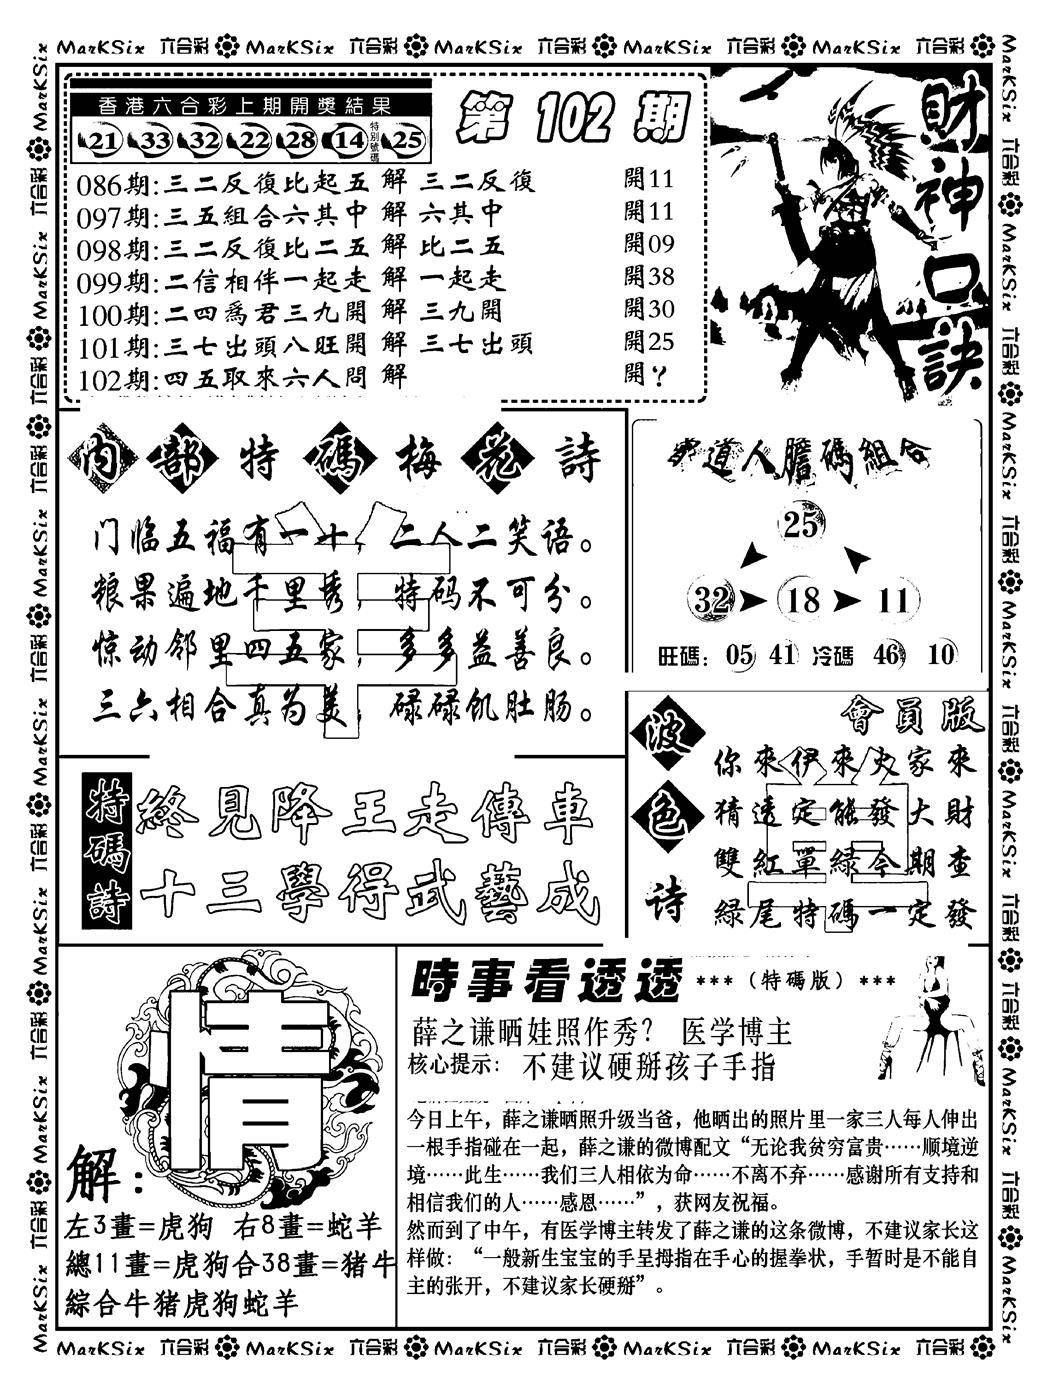 MarKSix 六合彩 MarKSix 六合彩 MarKSix 六合彩 MarKSix 六合彩 MarKSix 六合彩
香港六合彩上期開獎結果
21 33 32 22 28 14 特別號碼 25
第 102 期
086期:三二反復比起五 解 三二反復 開11
097期:三五組合六其中 解 六其中 開11
098期:三二反復比二五 解 比二五 開09
099期:二信相伴一起走 解 一起走 開38
100期:二四爲君三九開 解 三九開 開30
101期:三七出頭八旺開 解 三七出頭 開25
102期:四五取來六人問 解 開?
財神口訣
内部特碼梅花詩
门临五福有一十，二人二笑语。
粮果遍地千里秀，特码不可分。
惊动邻里四五家，多多益善良。
三六相合真为美，碌碌饥肚肠。
道人膽碼組合
25
32 18 11
旺碼：05 41 冷碼 46 10
特碼詩
終見降王走傳車
十三學得武藝成
波色诗
會員版
你來伊來火家來
猜透定能發大財
雙紅單綠今期查
綠尾特碼一定發
情
解：
左3畫=虎狗 右8畫=蛇羊
總11畫=虎狗合38畫=猪牛
綜合牛猪虎狗蛇羊
時事看透透 ***（特碼版）***
薛之谦晒娃照作秀？ 医学博主
核心提示： 不建议硬掰孩子手指
今日上午，薛之谦晒照升级当爸，他晒出的照片里一家三人每人伸出
一根手指碰在一起，薛之谦的微博配文“无论我贫穷富贵……顺境逆
境……此生……我们三人相依为命……不离不弃……感谢所有支持和
相信我们的人……感恩……”，获网友祝福。
然而到了中午，有医学博主转发了薛之谦的这条微博，不建议家长这
样做：“一般新生宝宝的手呈拇指在手心的握拳状，手暂时是不能自
主的张开，不建议家长硬掰”。
MarKSix 六合彩 MarKSix 六合彩 MarKSix 六合彩 MarKSix 六合彩 MarKSix 六合彩